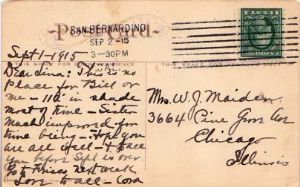 Post Card
SAN BERNARDINO
SEP 2-15
3-30PM
Sept 1-1915
Dear Lina: This is no
place for Bill or
me - 118 in shade
most time - Sister
Mack in for
time being - Hope you
are all well - &
you before Sept is over
Next week
Love to all - Cora
Mrs. W. J. Maiden
3664 Pine Grove Ave
Chicago
Illinois